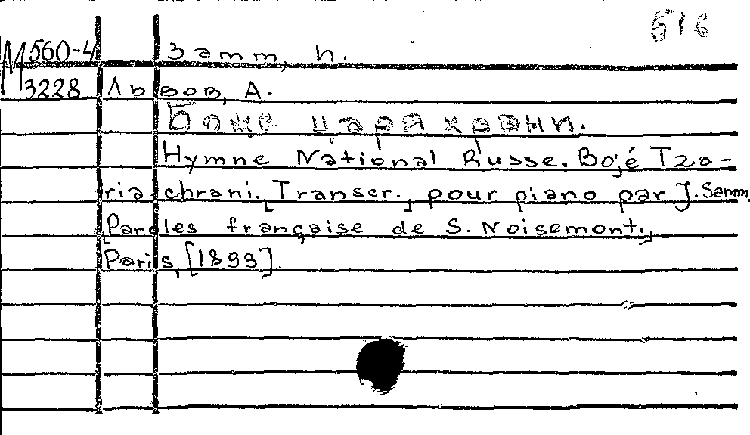 516
М560-4 Замм, И.
3228 Львов, А.
Боже царя храни.
Hymne National Russe. Bojé Tza-
ria chrani. [Transcr.] pour piano par J. Samm.
[Paroles française de S. Noisemont.]
Paris, [1893]